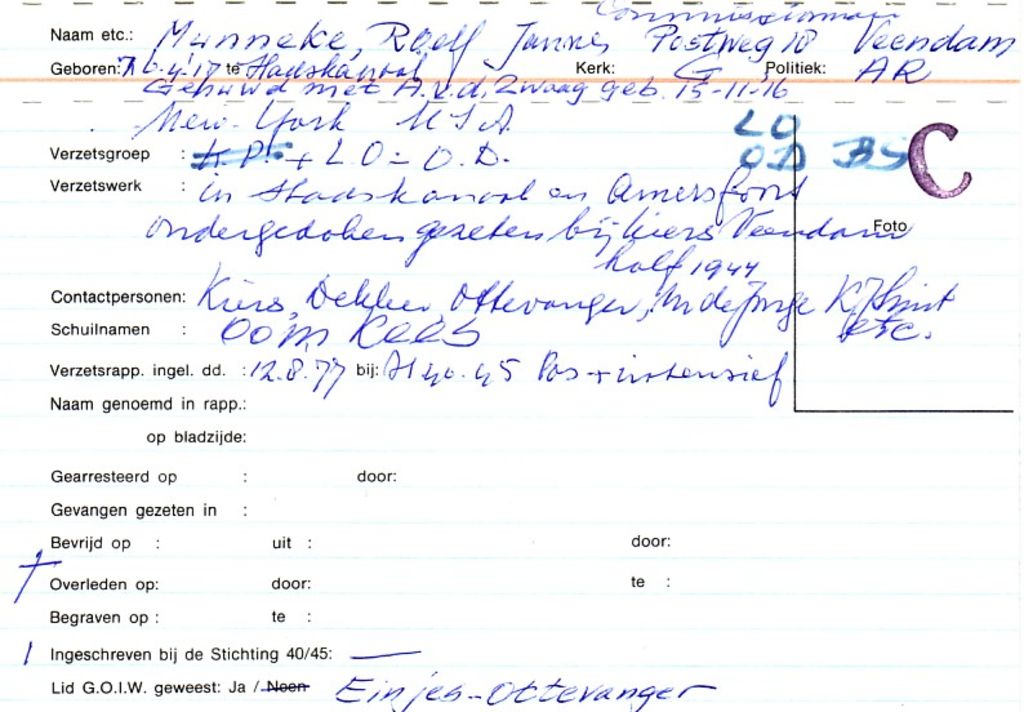 Commissionair
Naam etc.: Munneke, Roelf Jannes Postweg 18 Veendam
Geboren: 6-4-'17 te Stadskanaal Kerk: G Politiek: AR
Gehuwd met A.v.d. Zwaag geb. 15-11-16
New-York U.S.A.
LO
Verzetsgroep : K.P. + L.O - O.D. OD BS C
Verzetswerk : in Stadskanaal en Amersfoort
ondergedoken gezeten bij Kiers Veendam
Foto
half 1944
Contactpersonen: Kiers, Dekker, Ottevanger, KJ Smit
Schuilnamen : Oom Kees etc.
Verzetsrapp. ingel. dd. : 12.8.'77 bij: 45 Pos + intensief
Naam genoemd in rapp.:
op bladzijde:
Gearresteerd op : door:
Gevangen gezeten in :
Bevrijd op : uit : door:
Overleden op: door: te :
Begraven op : te :
Ingeschreven bij de Stichting 40/45: —
Lid G.O.I.W. geweest: Ja / Neen Eintjes-Ottevanger